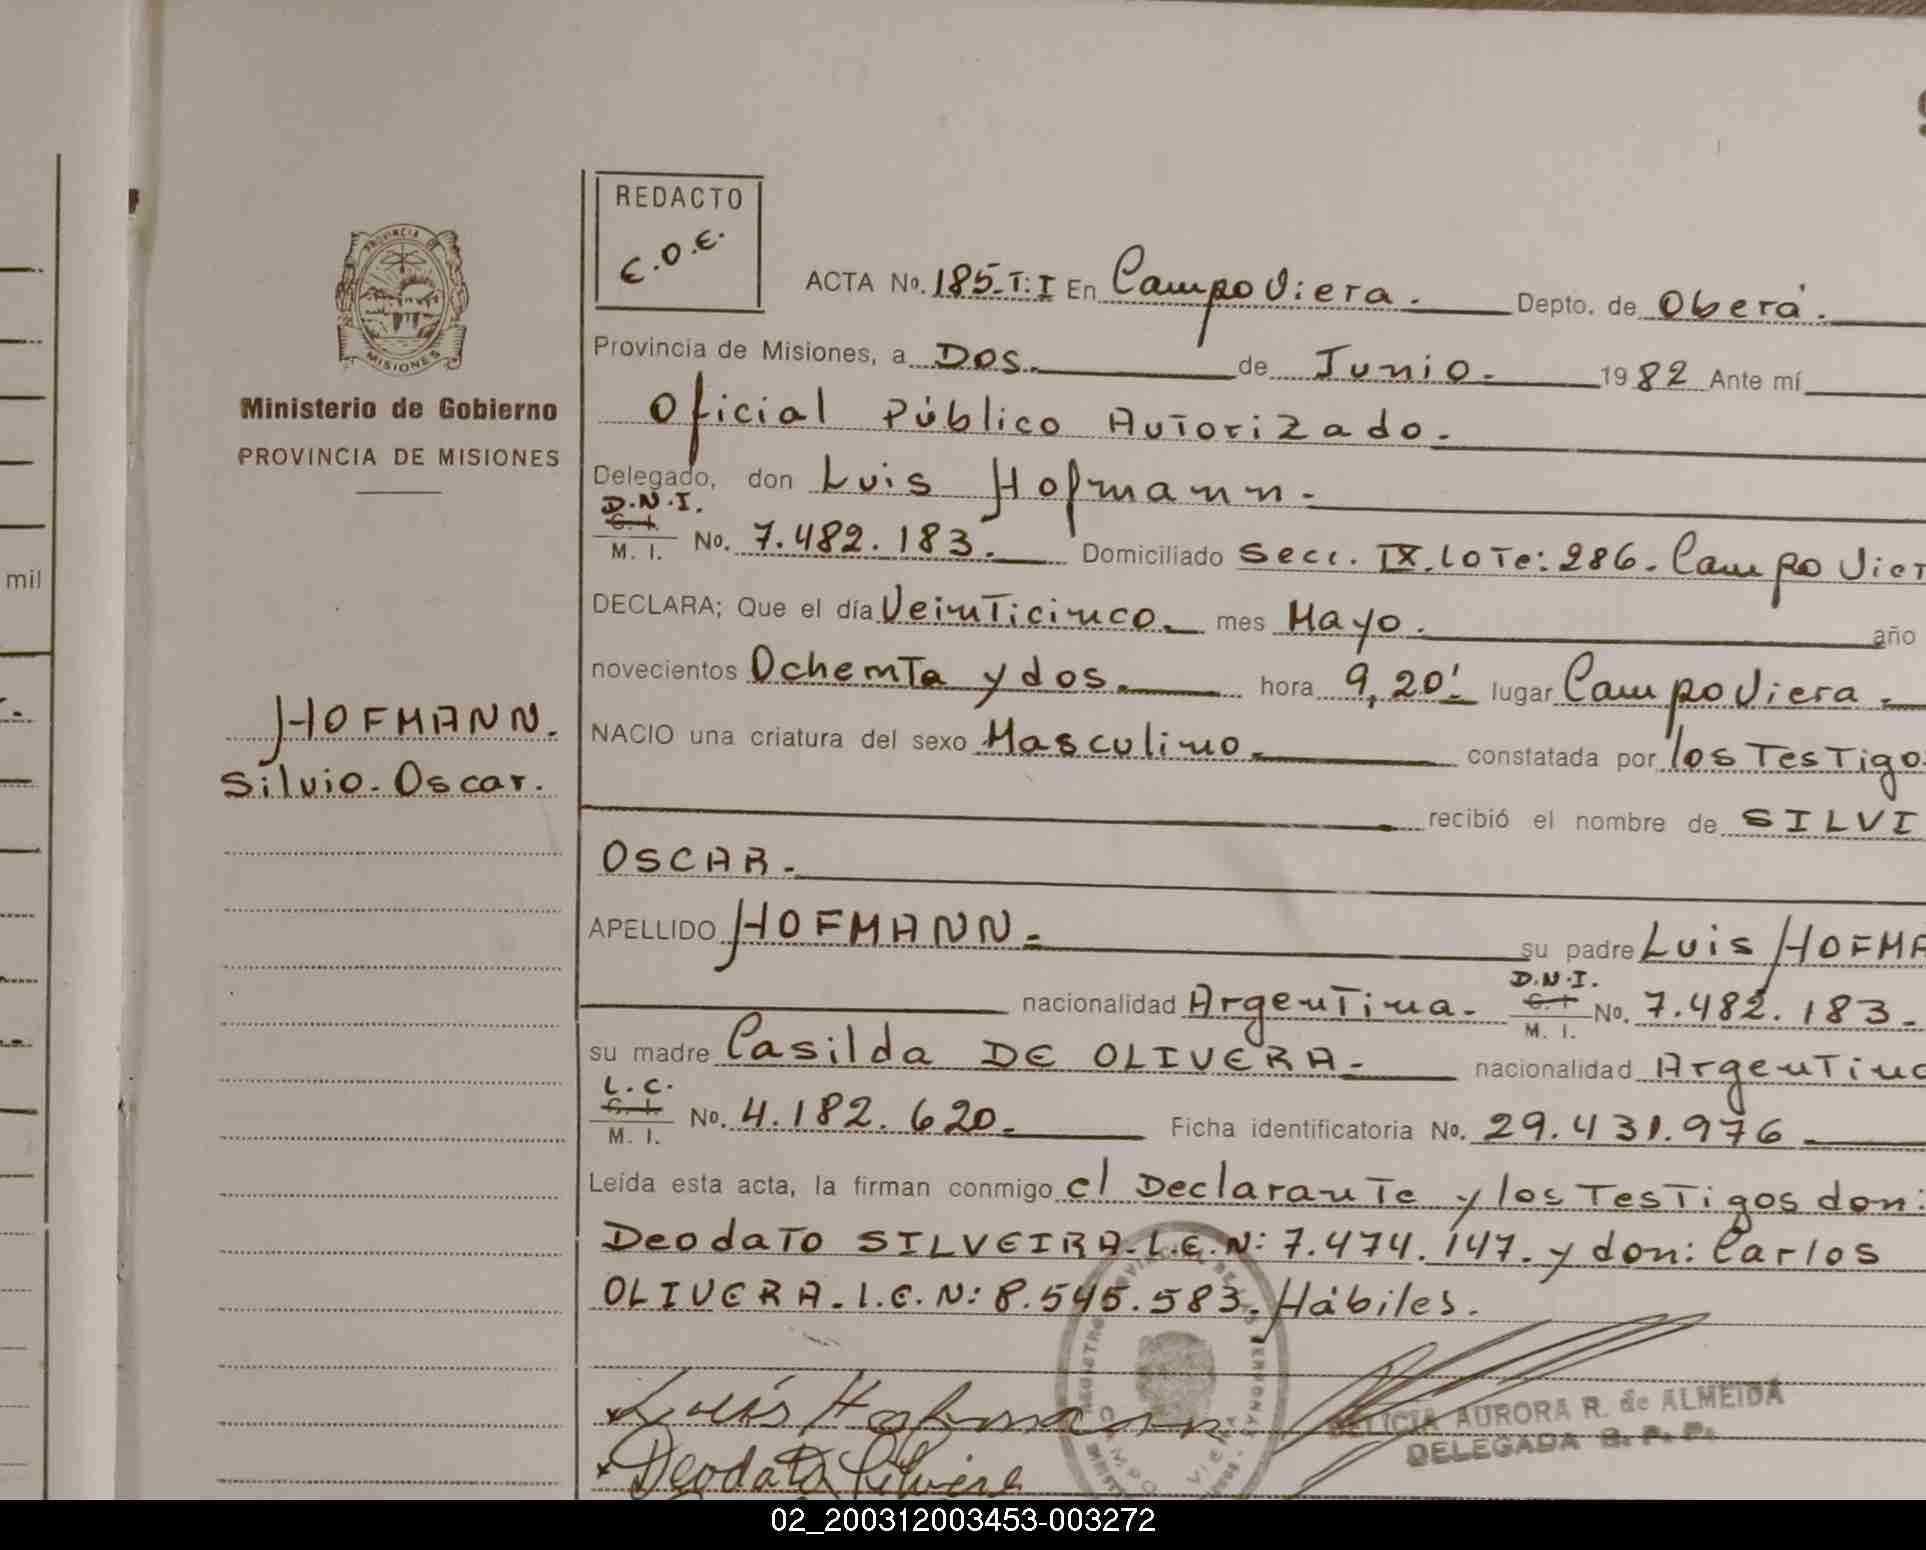 REDACTO
E.O.E.
PROVINCIA DE
MISIONES
Ministerio de Gobierno
PROVINCIA DE MISIONES
mil
HOFMANN.
Silvio-Oscar.
ACTA No. 185-T:I En Campo Viera. Depto. de Oberá.
Provincia de Misiones, a Dos. de Junio. 1982 Ante mí
Oficial Público Autorizado.
Delegado, don Luis Hofmann.
D.N.I.
C. I.
M. I. No. 7.482.183. Domiciliado Secc. IX. Lote: 286. Campo Vier
DECLARA; Que el día Veinticinco. mes Mayo. año
novecientos Ochenta y dos. hora 9,20'. lugar Campo Viera.
NACIO una criatura del sexo Masculino. constatada por los Testigo
recibió el nombre de SILVI
OSCAR.
APELLIDO HOFMANN. su padre Luis HOFMA
D.N.I.
C. I.
nacionalidad Argentina. M. I. No. 7.482.183.
su madre Casilda DE OLIVERA. nacionalidad Argentina
L.C.
C. I.
M. I. No. 4.182.620. Ficha identificatoria No. 29.431.976
Leída esta acta, la firman conmigo el Declarante y los Testigos don:
Deodato SILVEIRA. L.E.N: 7.474.147. y don: Carlos
OLIVERA. L.E.N: 8.545.583. Hábiles.
Luis Hofmann
AURORA R. de ALMEIDA
DELEGADA R. P. P.
Deodato Silveira
CAMPO VIERA
02_200312003453-003272